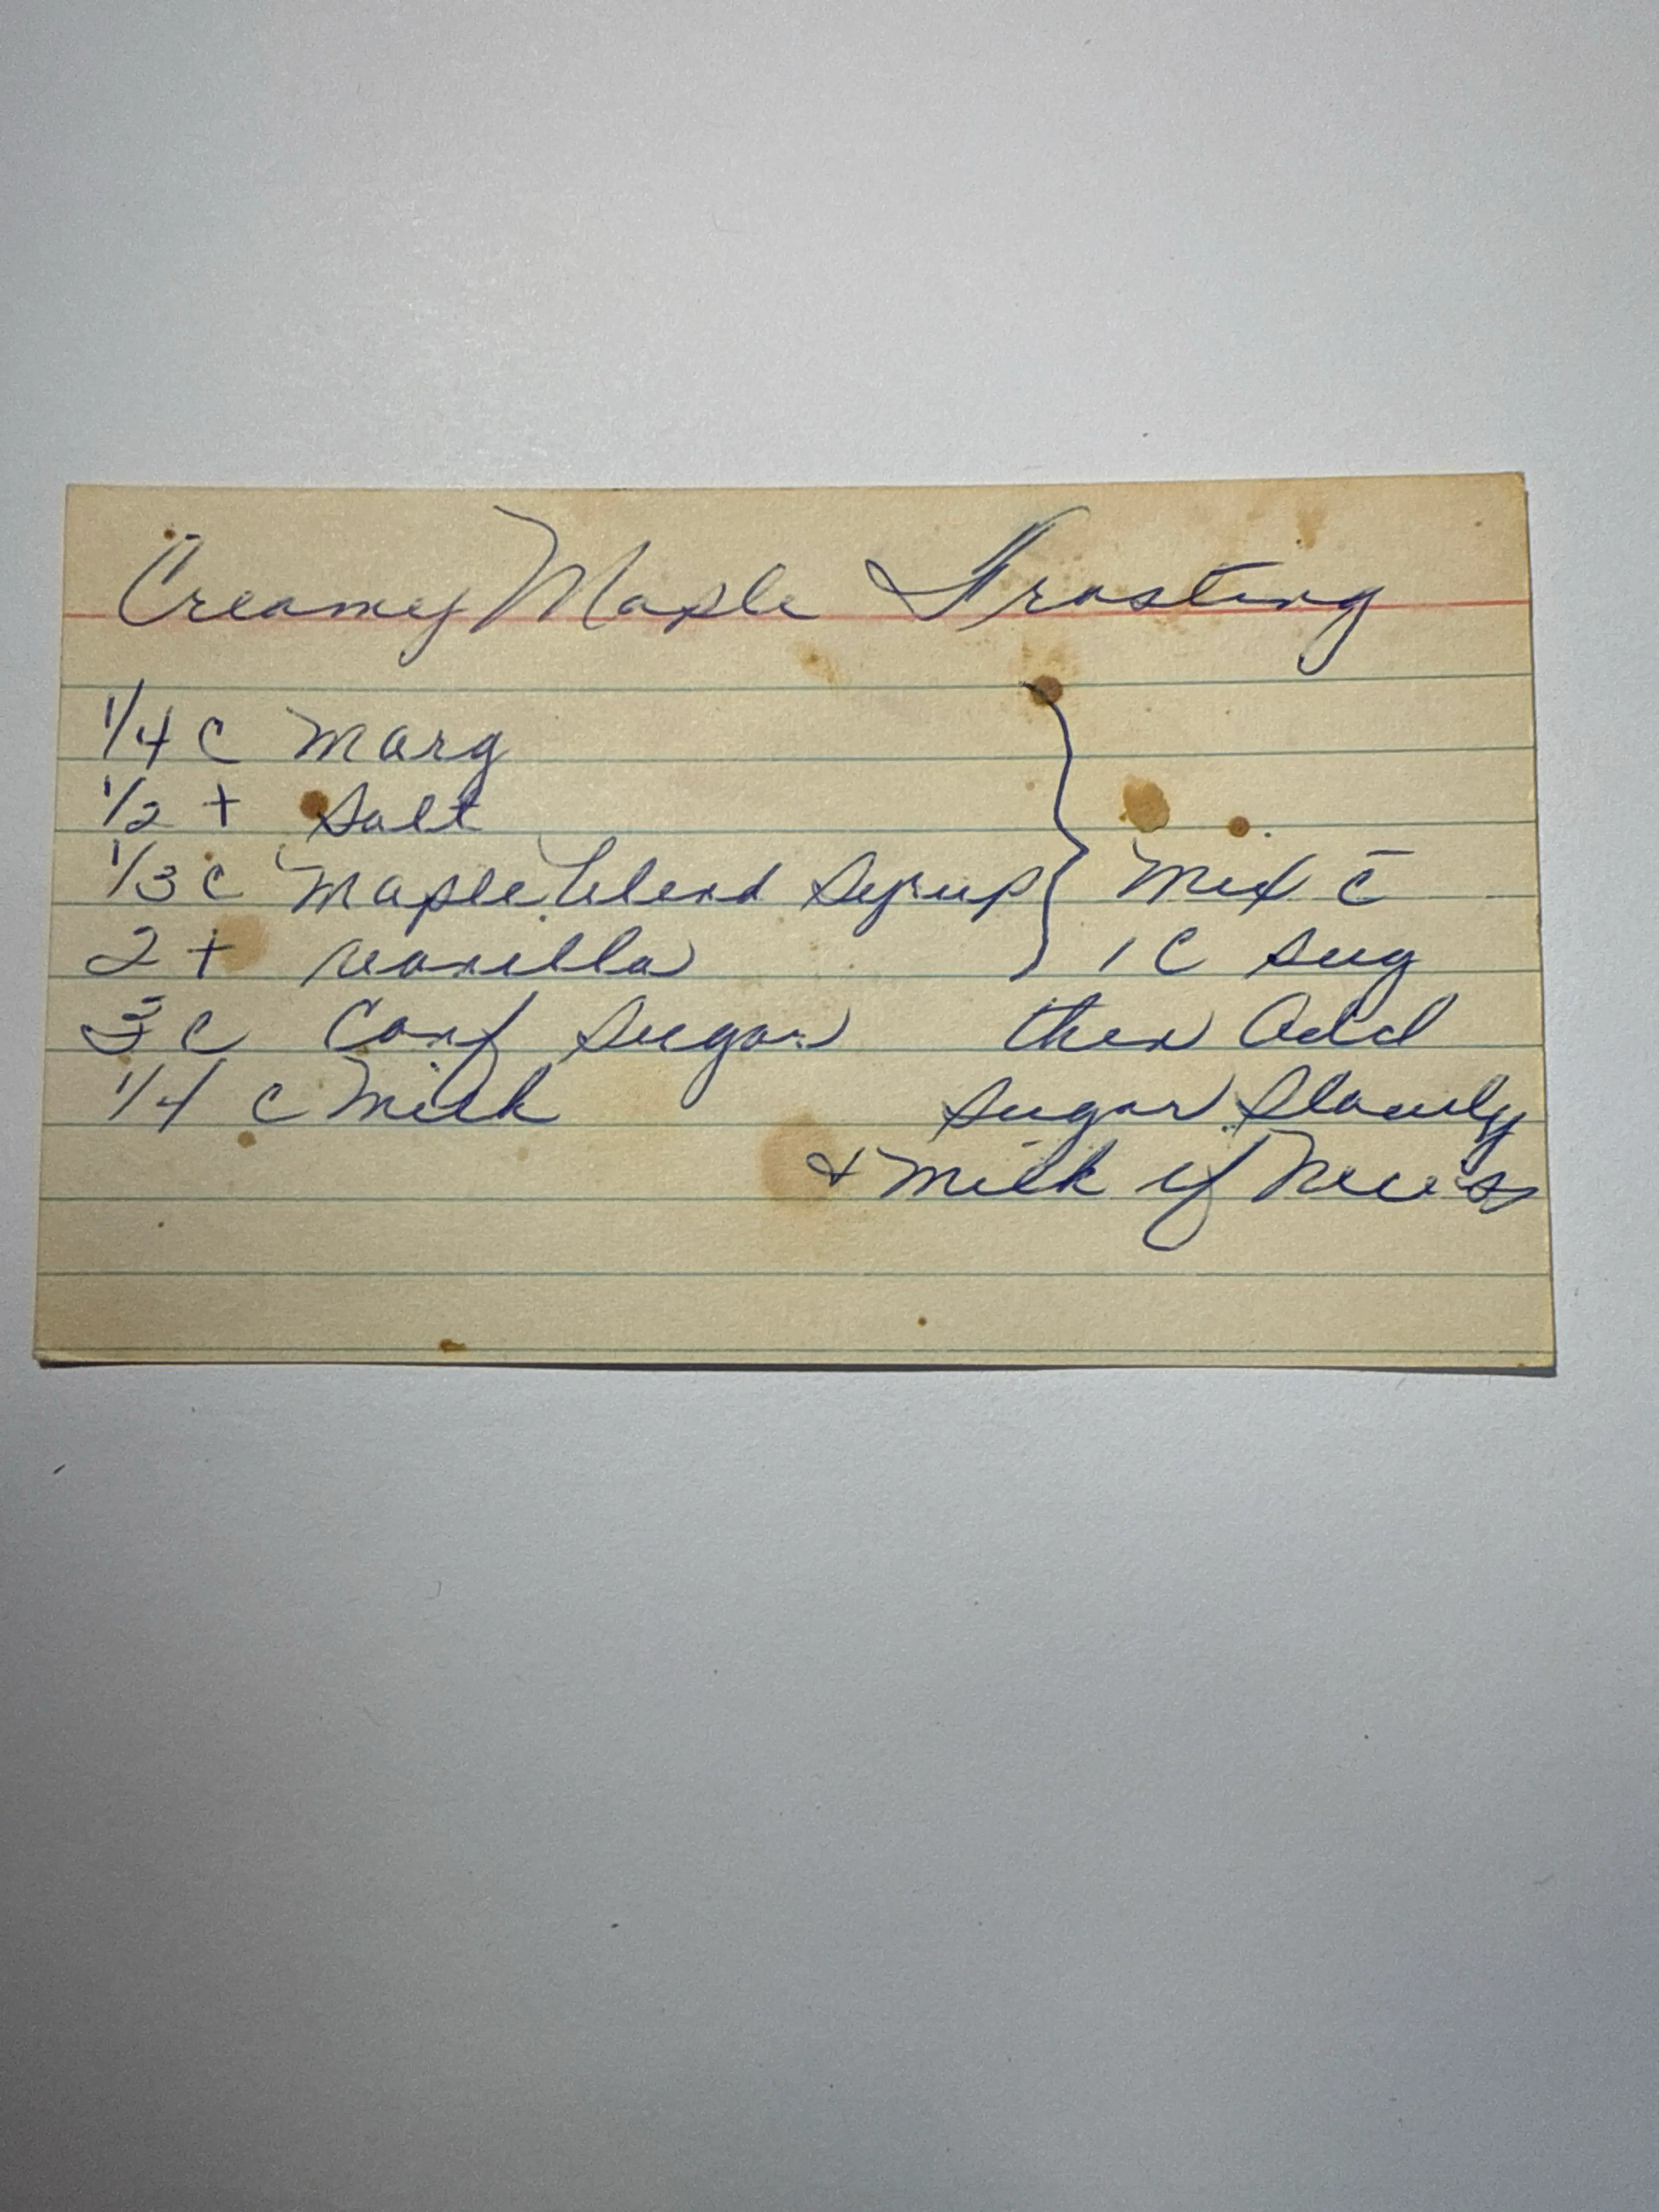 Creamy Maple Frosting
1/4 C Marg
1/2 t Salt
1/3 C Maple blend Syrup } Mix c̄
2 t vanilla 1 C sug
3 C Conf Sugar then Add
1/4 C Milk sugar slowly
& Milk if Necess